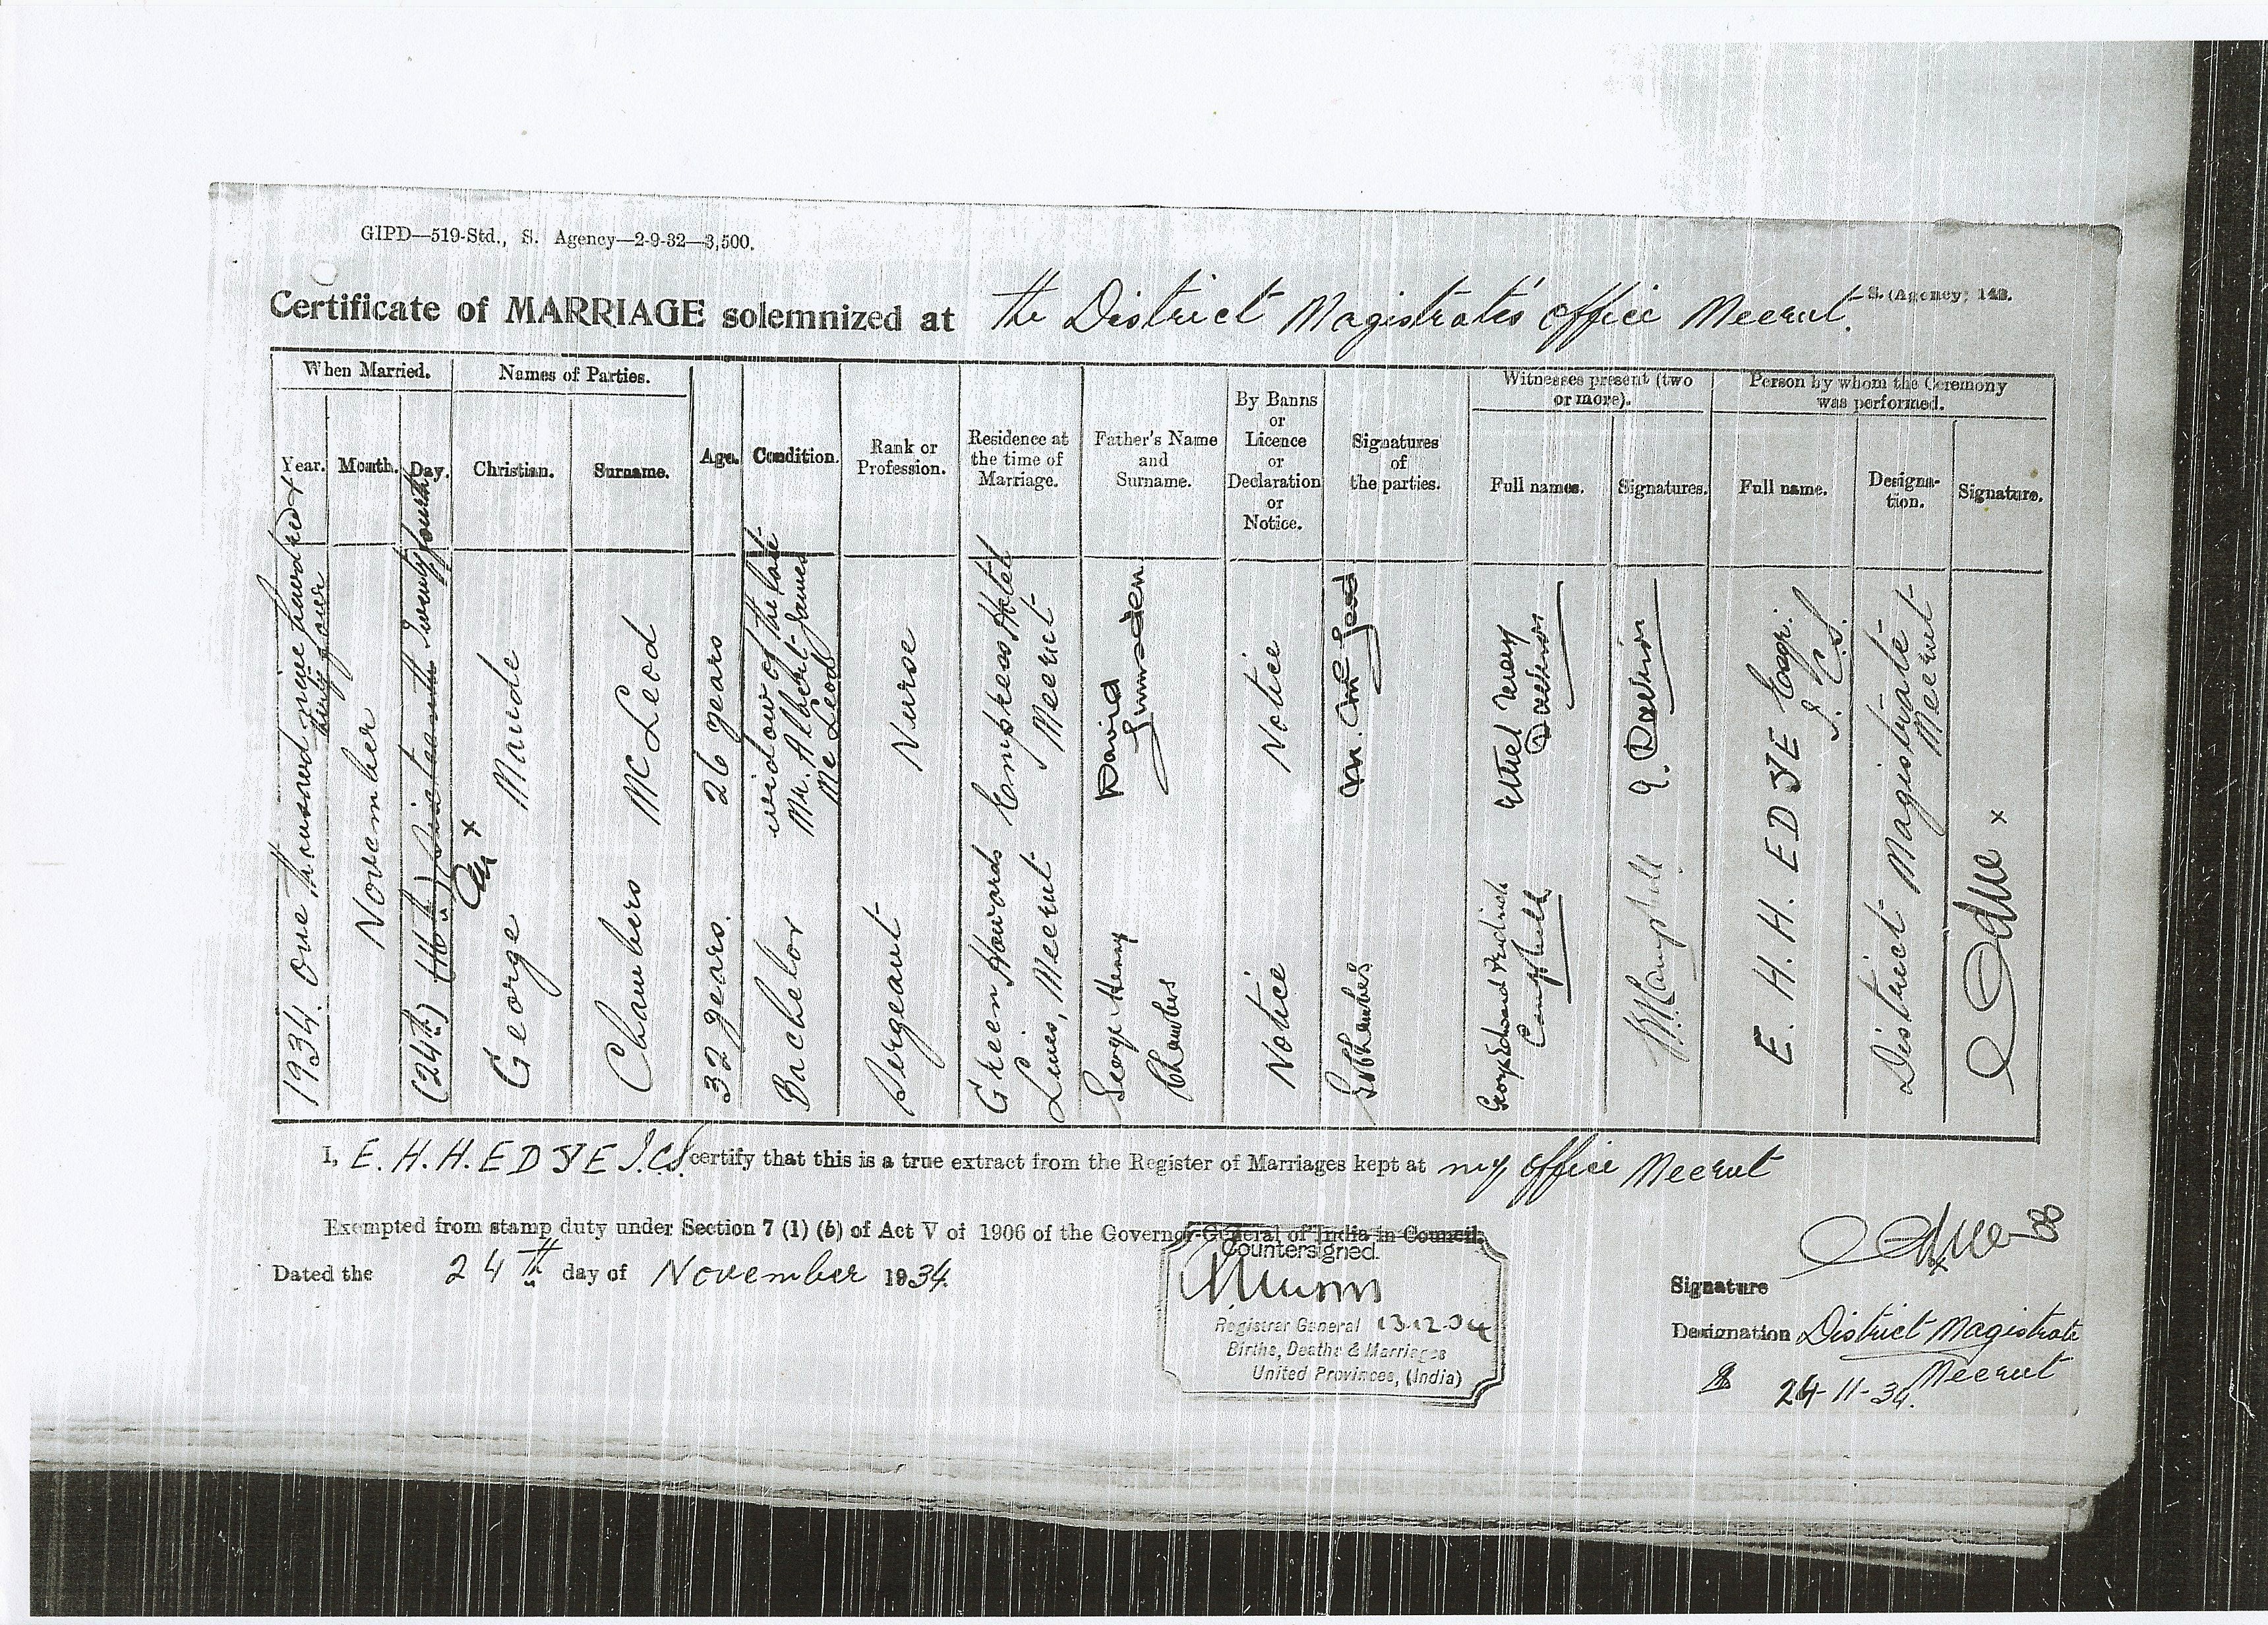 GIPD—519-Std., S. Agency—2-9-32—3,500.
S. (Agency) 143.
Certificate of MARRIAGE solemnized at the District Magistrate's office Meerut.
When Married.
Names of Parties.
Witnesses present (two
or more).
Person by whom the Ceremony
was performed.
Year.
Month.
Day.
Christian.
Surname.
Age.
Condition.
Rank or
Profession.
Residence at
the time of
Marriage.
Father's Name
and
Surname.
By Banns
or
Licence
or
Declaration
or
Notice.
Signatures
of
the parties.
Full names.
Signatures.
Full name.
Designa-
tion.
Signature.
1934. One thousand nine hundred &
thirty four
November
(24th) (16th) Sixteenth Twenty fourth
George
Chambers
32 years.
Bachelor
Sergeant
Green Howards
Lines, Meerut
George Henry
Chambers
Notice
G Chambers
George Edward Fredrick
Campbell
Campbell
Maude
McLeod
26 years
widow of the late
Mr. Albert James
McLeod
Nurse
Empress Hotel
Meerut
David
Notice
M. McLeod
Ethel Mary
E. H. H. EDYE Esqr.
I. C. S.
District Magistrate
Meerut
I, E. H. H. EDYE I.C.S. certify that this is a true extract from the Register of Marriages kept at my office Meerut
Exempted from stamp duty under Section 7 (1) (b) of Act V of 1906 of the Governor-General of India in Council.
Dated the 24th day of November 1934.
Countersigned.
Registrar General 13.12.34
Births, Deaths & Marriages
United Provinces, (India)
Signature
Designation District Magistrate
Meerut
24-11-34.